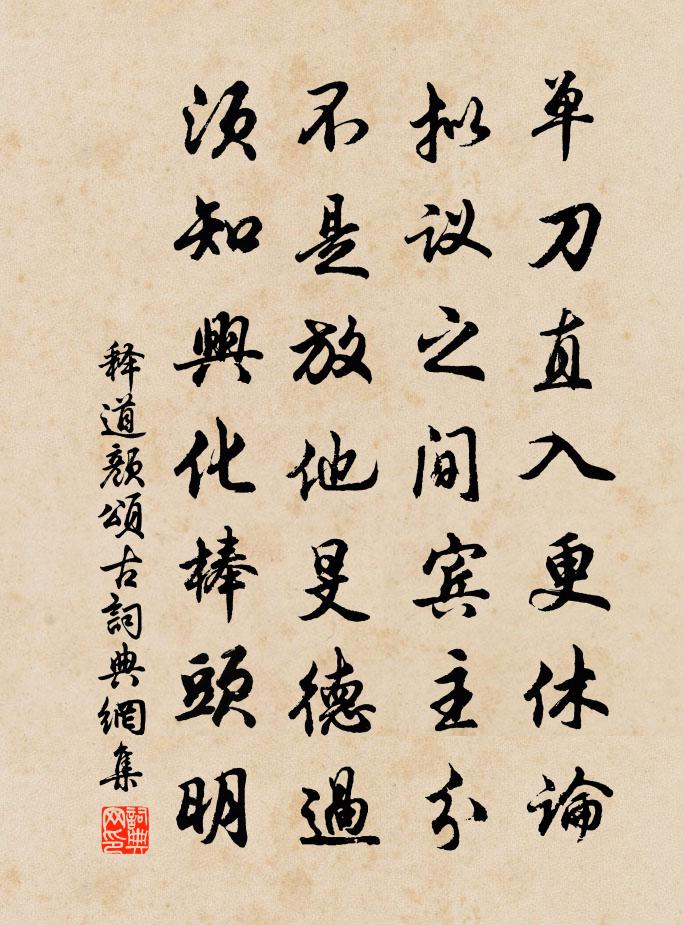 单刀直入更休论
拟议之间宾主分
不是放他旻德過
须知興化棒頭明
释道颜頌古詞典網集
詞典网印